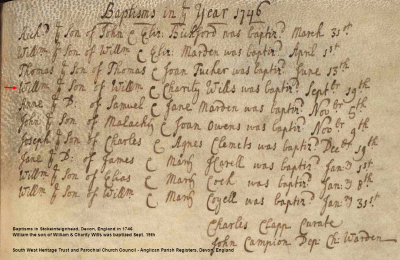 Baptisms in ye Year 1746
Richd ye Son of John & Eliz: Bickford was baptizd March 31st
Willm ye Son of Willm & Eliz: Marden was baptizd April 1st
Thomas ye Son of Thomas & Joan Tucker was baptizd June 13th
Willm ye Son of Willm & Charity Wills was baptizd Septbr 19th
Anne ye D: of Samuel & Jane Marden was baptizd Novbr 5th
John ye Son of Malachy & Joan Owens was baptizd Novbr 9th
Joseph ye Son of Charles & Agnes Clamets was baptizd Decbr 19th
Jane ye D: of James & Mary was baptizd Jan:y 1st
Willm ye Son of Elias & Mary Cock was baptizd Jan:y 8th
Willm ye Son of Willm & Mary Coyell was baptizd Jan:y 31st
Charles Clapp Curate
John Campion Dep: Ch: Warden
Baptisms in Stokeinteignhead, Devon, England in 1746.
William the son of William & Charity Wills was baptized Sept. 19th
South West Heritage Trust and Parochial Church Council - Anglican Parish Registers, Devon, England